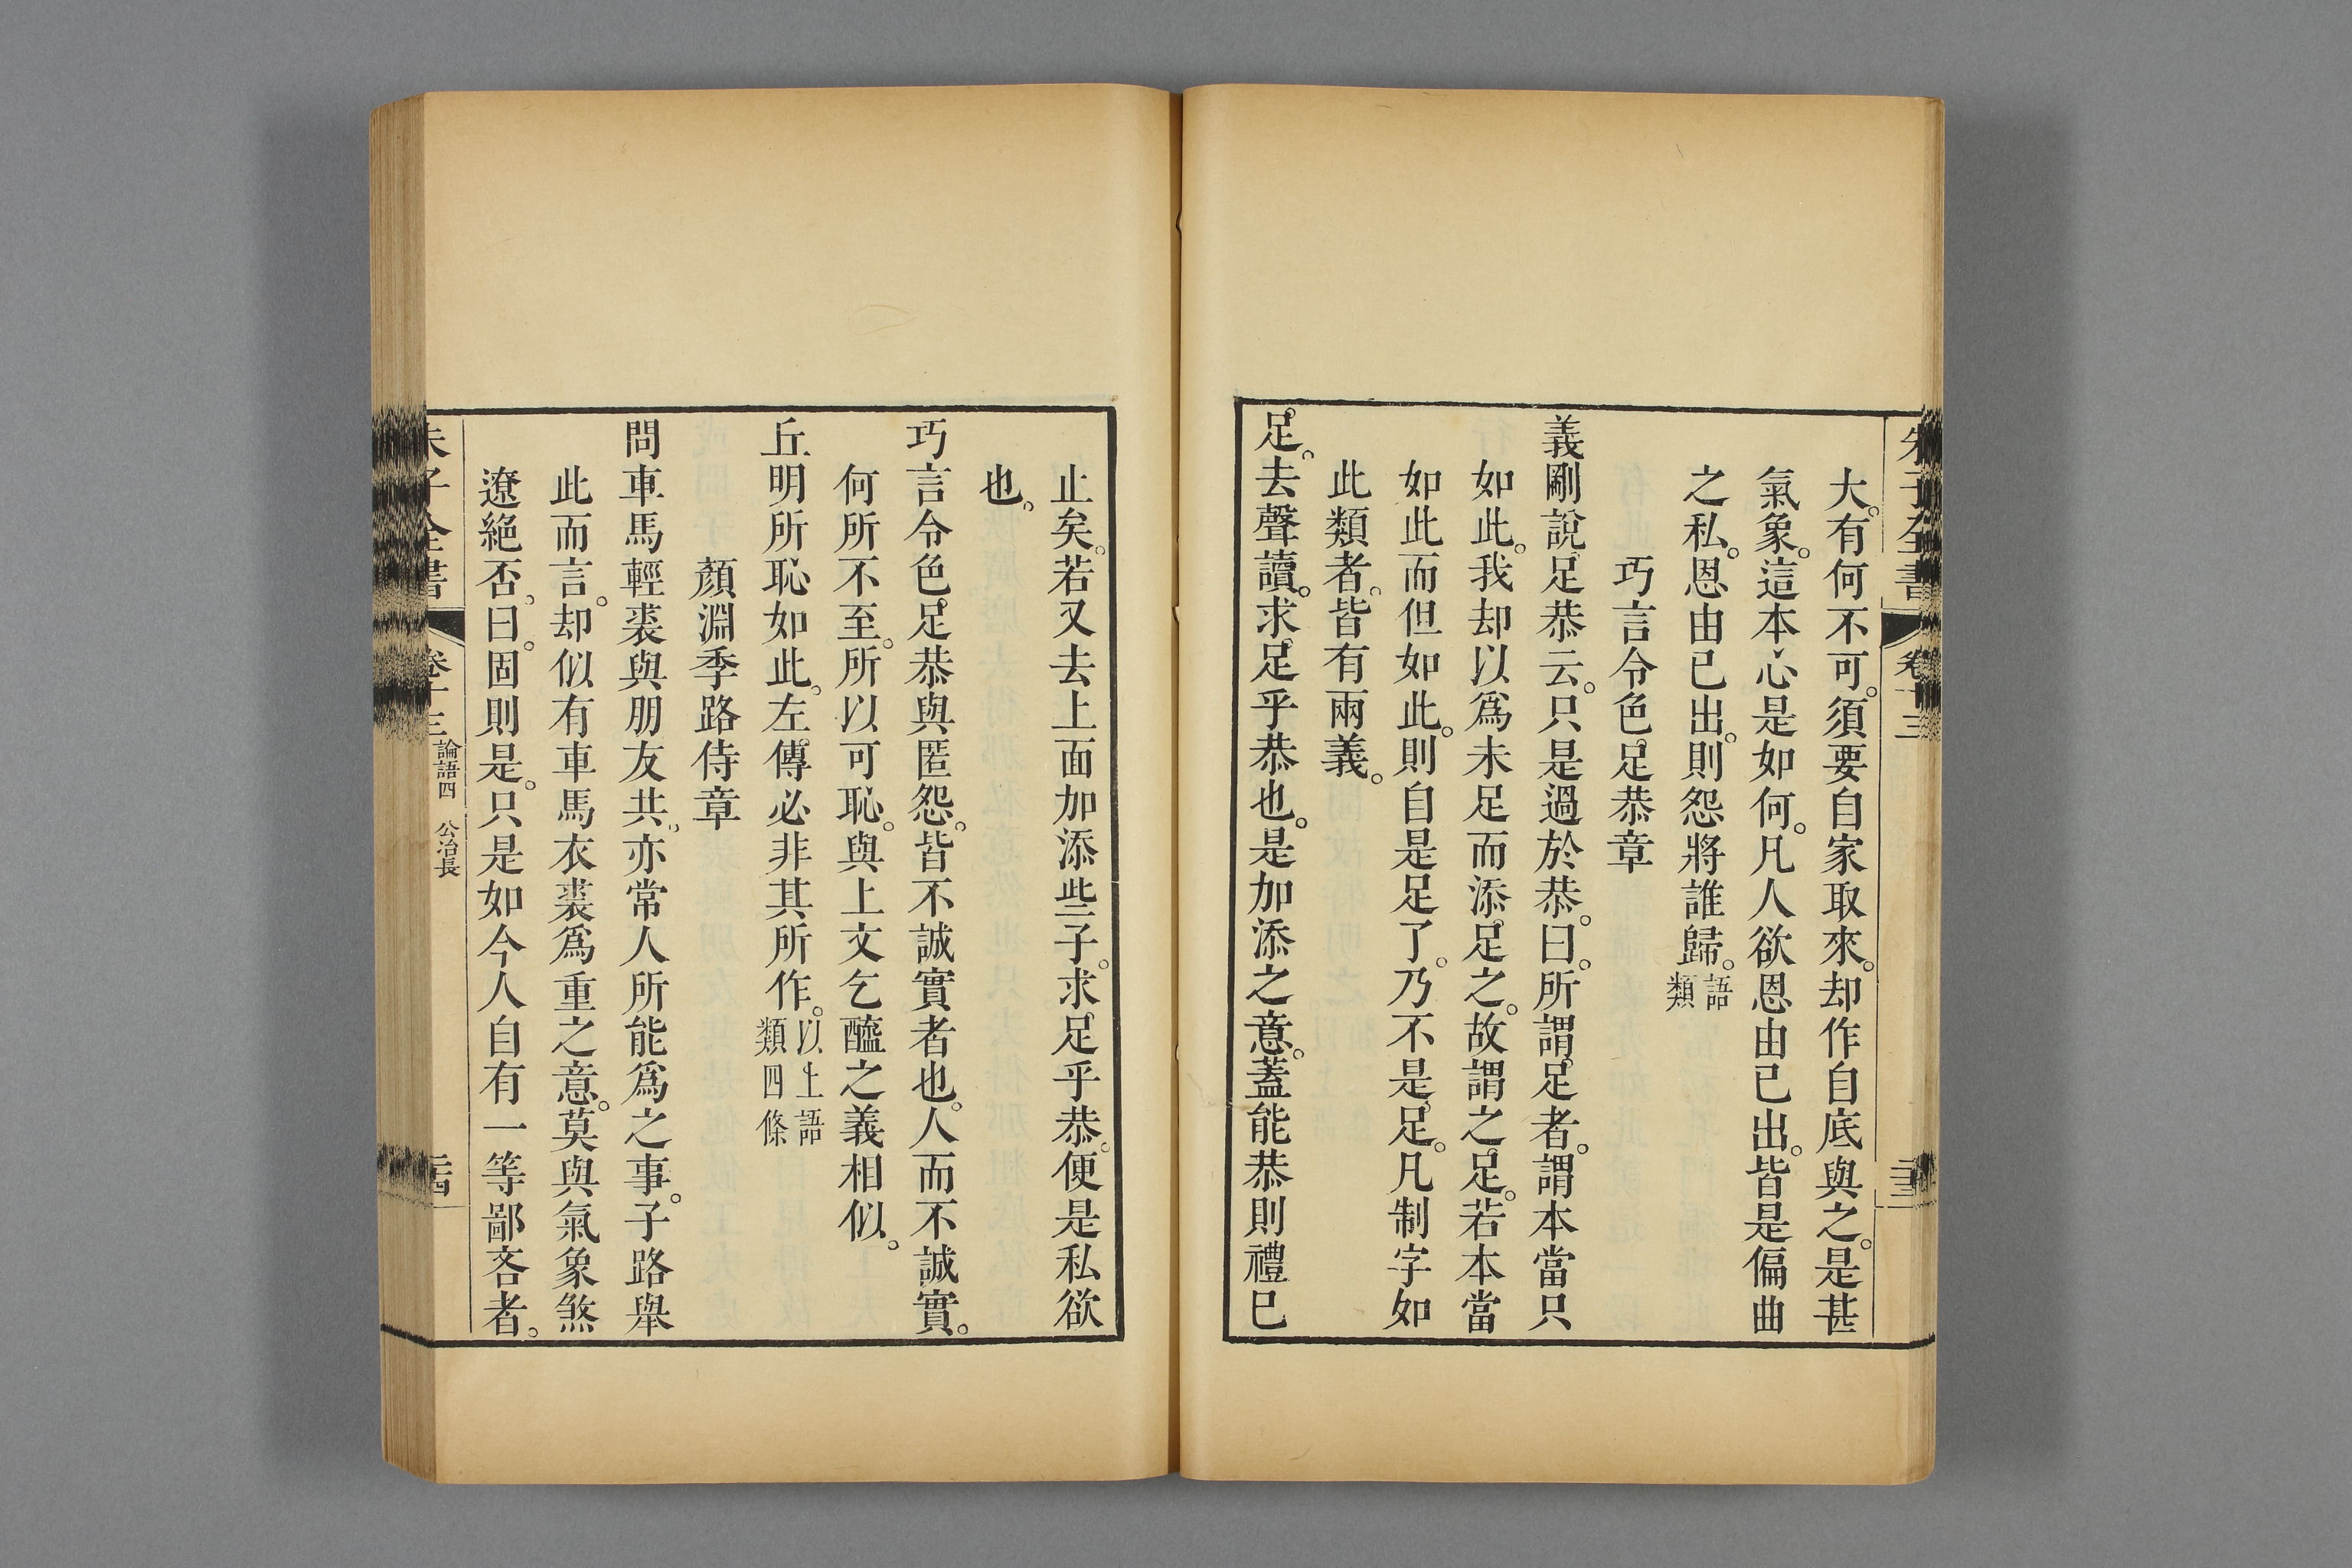 朱子全書 卷十三
大。有何不可。須要自家取來。却作自底與之。是甚
氣象。這本心是如何。凡人欲恩由已出。皆是偏曲
之私。恩由已出。則怨將誰歸。語類
巧言令色足恭章
義剛說足恭云。只是過於恭。曰。所謂足者。謂本當只
如此。我却以爲未足而添足之。故謂之足。若本當
如此而但如此。則自是足了。乃不是足。凡制字如
此類者。皆有兩義。
足。去聲讀。求足乎恭也。是加添之意。蓋能恭則禮已
止矣。若又去上面加添些子。求足乎恭。便是私欲
也。
巧言令色足恭與匿怨。皆不誠實者也。人而不誠實。
何所不至。所以可恥。與上文乞醯之義相似。
丘明所恥如此。左傳必非其所作。以上語類四條
顏淵季路侍章
問車馬輕裘與朋友共。亦常人所能爲之事。子路舉
此而言。却似有車馬衣裘爲重之意。莫與氣象煞
遼絕否。曰。固則是。只是如今人自有一等鄙吝者。
朱子全書 卷十三 論語四 公冶長